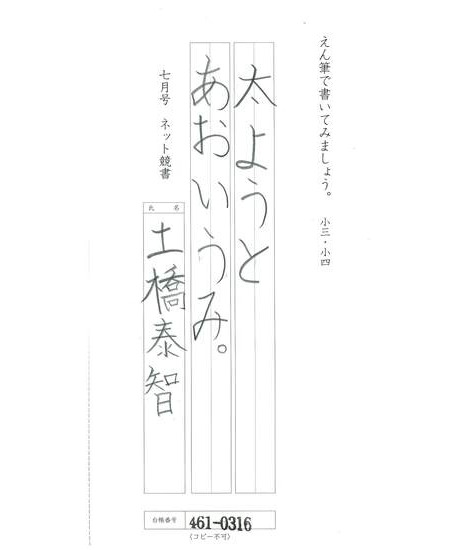 えん筆で書いてみましょう。 小三・小四
太ようと
あおいうみ。
七月号 ネット競書
氏 名
土橋泰智
台帳番号 461-0316
(コピー不可)